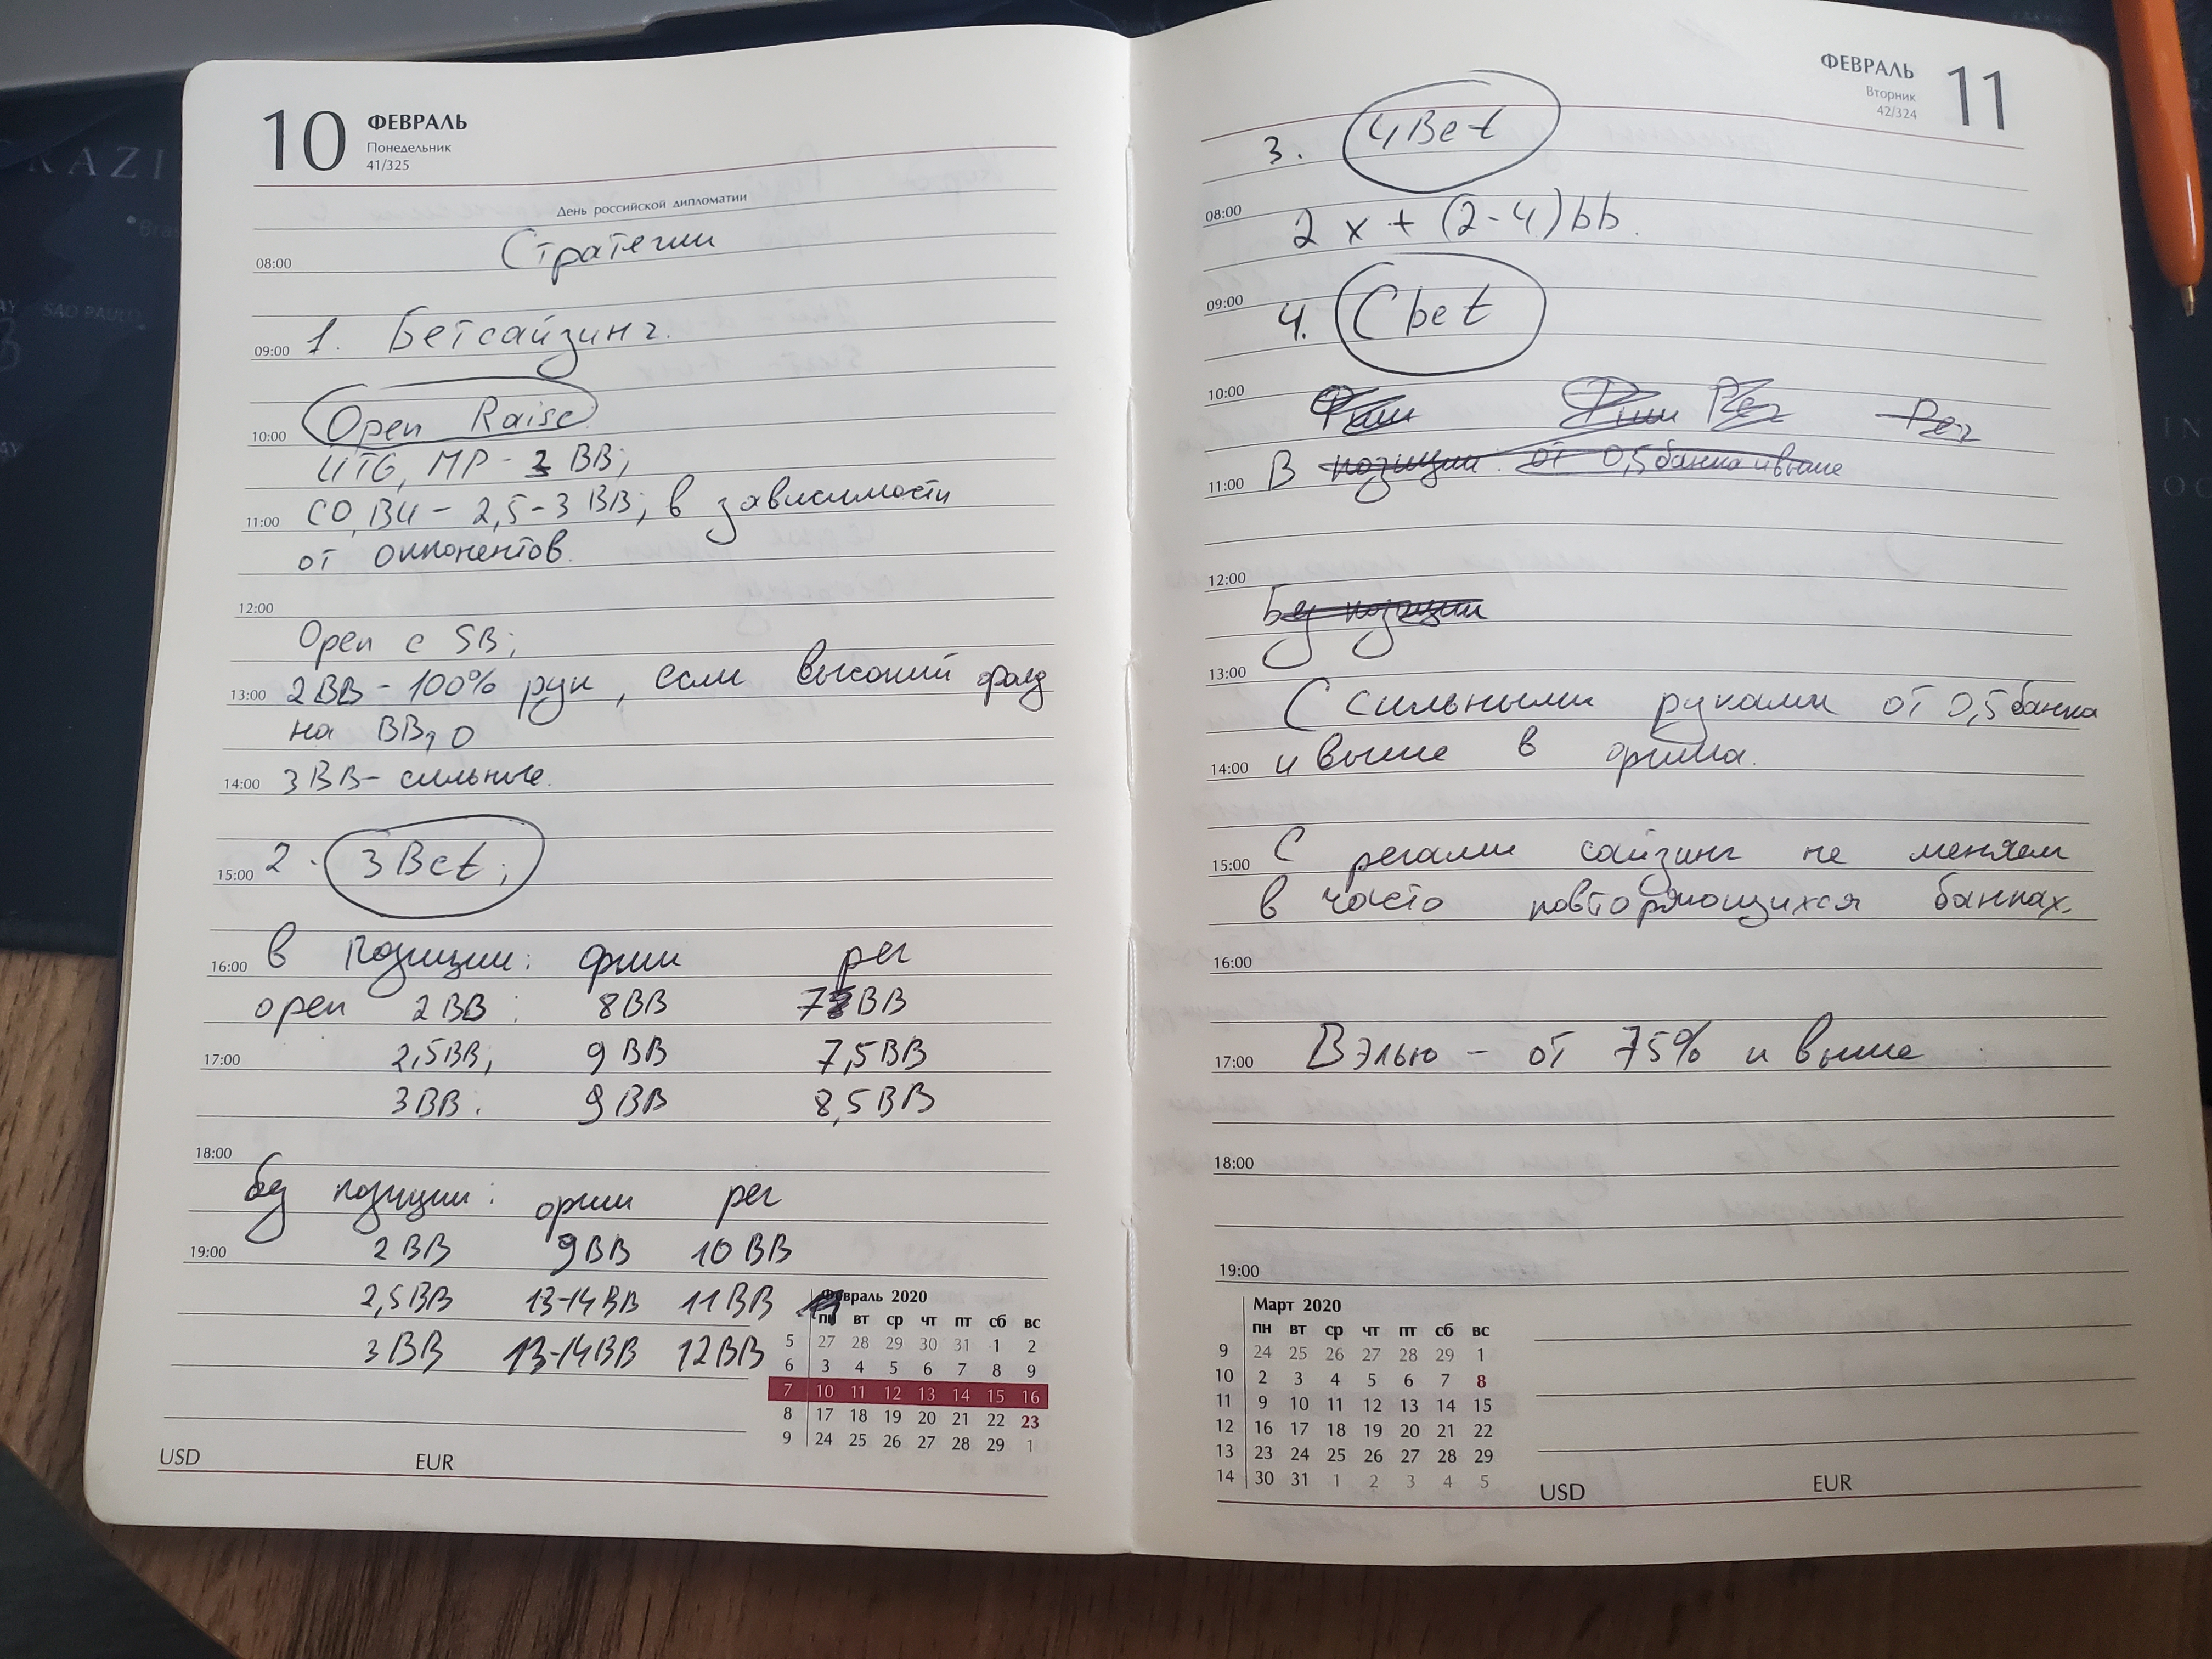 10 ФЕВРАЛЬ
Понедельник
41/325
День российской дипломатии
Стратегии
08:00
09:00 1. Бетсайзинг.
Open Raise
10:00
UTG, MP - 3 BB;
11:00 CO, BU - 2,5-3 BB; в зависимости
от оппонентов.
12:00
Open с SB;
13:00 2BB - 100% рук, если высокий фолд
на BB,
14:00 3 BB - сильные.
15:00 2. 3Bet;
16:00 в позиции: фиш рег
open 2 BB: 8BB 7BB
17:00 2,5BB; 9 BB 7,5BB
3BB: 9 BB 8,5BB
18:00
без позиции: фиш рег
19:00 2 BB 9BB 10 BB
2,5 BB 13-14 BB 11 BB
3 BB 13-14BB 12BB
Февраль 2020
пн вт ср чт пт сб вс
5 27 28 29 30 31 1 2
6 3 4 5 6 7 8 9
7 10 11 12 13 14 15 16
8 17 18 19 20 21 22 23
9 24 25 26 27 28 29 1
USD EUR
ФЕВРАЛЬ 11
Вторник
42/324
3. 4Bet
08:00 2 x + (2-4)bb.
09:00 4. Cbet
10:00 Фиш Фиш Рег Рег
11:00 В позиции: от 0,5 банка и выше
12:00
Без позиции
13:00
С сильными руками от 0,5 банка
14:00 и выше в фиша.
15:00 С регами сайзинг не меняем
в часто повторяющихся банках.
16:00
17:00 Вэлью - от 75% и выше
18:00
19:00
Март 2020
пн вт ср чт пт сб вс
9 24 25 26 27 28 29 1
10 2 3 4 5 6 7 8
11 9 10 11 12 13 14 15
12 16 17 18 19 20 21 22
13 23 24 25 26 27 28 29
14 30 31 1 2 3 4 5
USD EUR
SAO PAULO